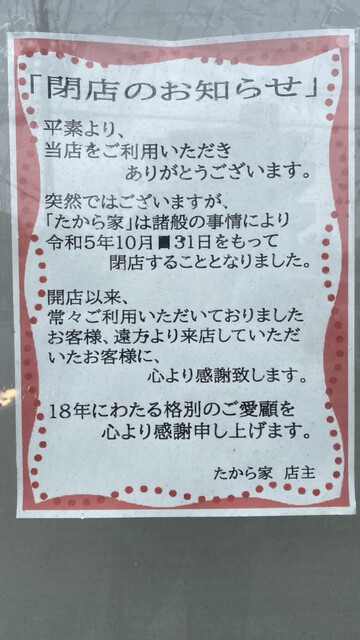 「閉店のお知らせ」
平素より、
当店をご利用いただき
ありがとうございます。
突然ではございますが、
「たから家」は諸般の事情により
令和5年10月■31日をもって
閉店することとなりました。
開店以来、
常々ご利用いただいておりました
お客様、遠方より来店していただ
いたお客様に、
心より感謝致します。
18年にわたる格別のご愛顧を
心より感謝申し上げます。
たから家 店主